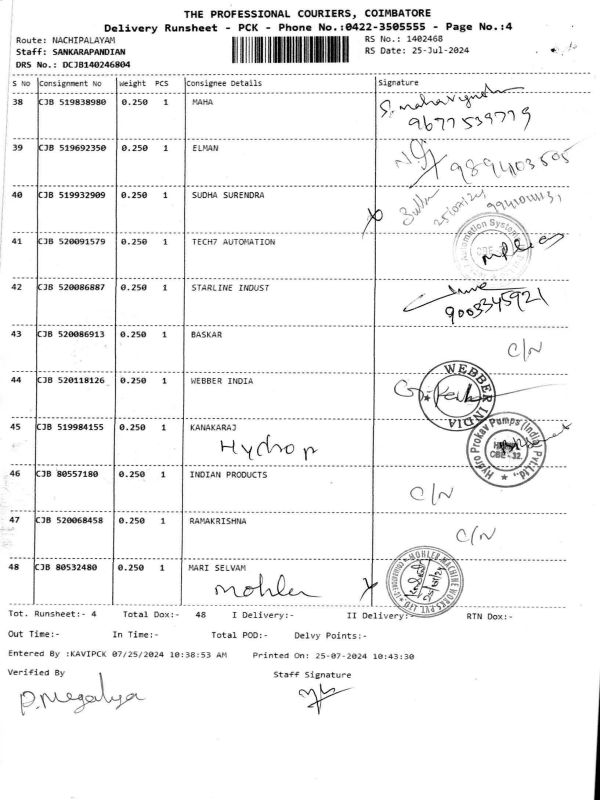 THE PROFESSIONAL COURIERS, COIMBATORE
Delivery Runsheet - PCK - Phone No.:0422-3505555 - Page No.:4
Route: NACHIPALAYAM RS No.: 1402468
Staff: SANKARAPANDIAN RS Date: 25-Jul-2024
DRS No.: DCJB140246804
S No Consignment No Weight PCS Consignee Details Signature
38 CJB 519838980 0.250 1 MAHA
9677539779
39 CJB 519692350 0.250 1 ELMAN
9894103505
40 CJB 519932909 0.250 1 SUDHA SURENDRA
25/07/24
41 CJB 520091579 0.250 1 TECH7 AUTOMATION
Automation System
42 CJB 520086887 0.250 1 STARLINE INDUST
9003345921
43 CJB 520086913 0.250 1 BASKAR
C/N
44 CJB 520118126 0.250 1 WEBBER INDIA
WEBBER INDIA
45 CJB 519984155 0.250 1 KANAKARAJ
Hydro p
Hydro Prokav Pumps (India) Pvt.Ltd.,
CBE - 32.
46 CJB 80557180 0.250 1 INDIAN PRODUCTS
C/N
47 CJB 520068458 0.250 1 RAMAKRISHNA
C/N
48 CJB 80532480 0.250 1 MARI SELVAM
mohler
MOHLER MACHINE WORKS PVT. LTD.
Tot. Runsheet:- 4 Total Dox:- 48 I Delivery:- II Delivery:- RTN Dox:-
Out Time:- In Time:- Total POD:- Delvy Points:-
Entered By :KAVIPCK 07/25/2024 10:38:53 AM Printed On: 25-07-2024 10:43:30
Verified By Staff Signature
P.Megalya